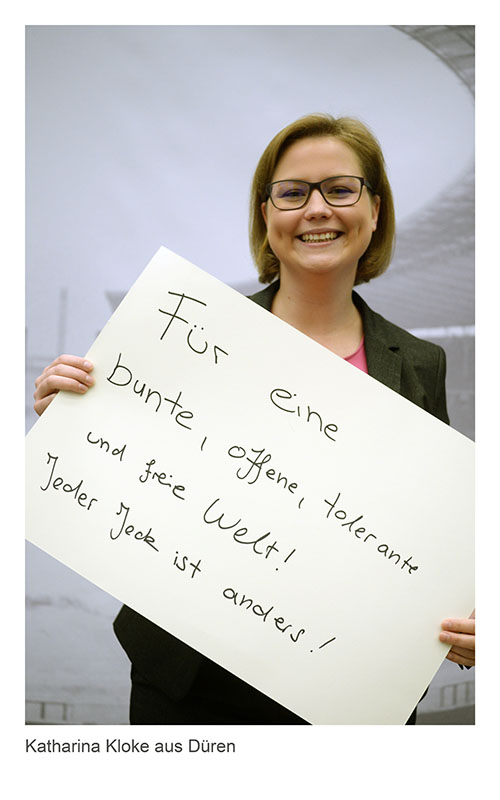 Für eine
bunte, offene, tolerante
und freie Welt!
Jeder Jeck ist anders!
Katharina Kloke aus Düren